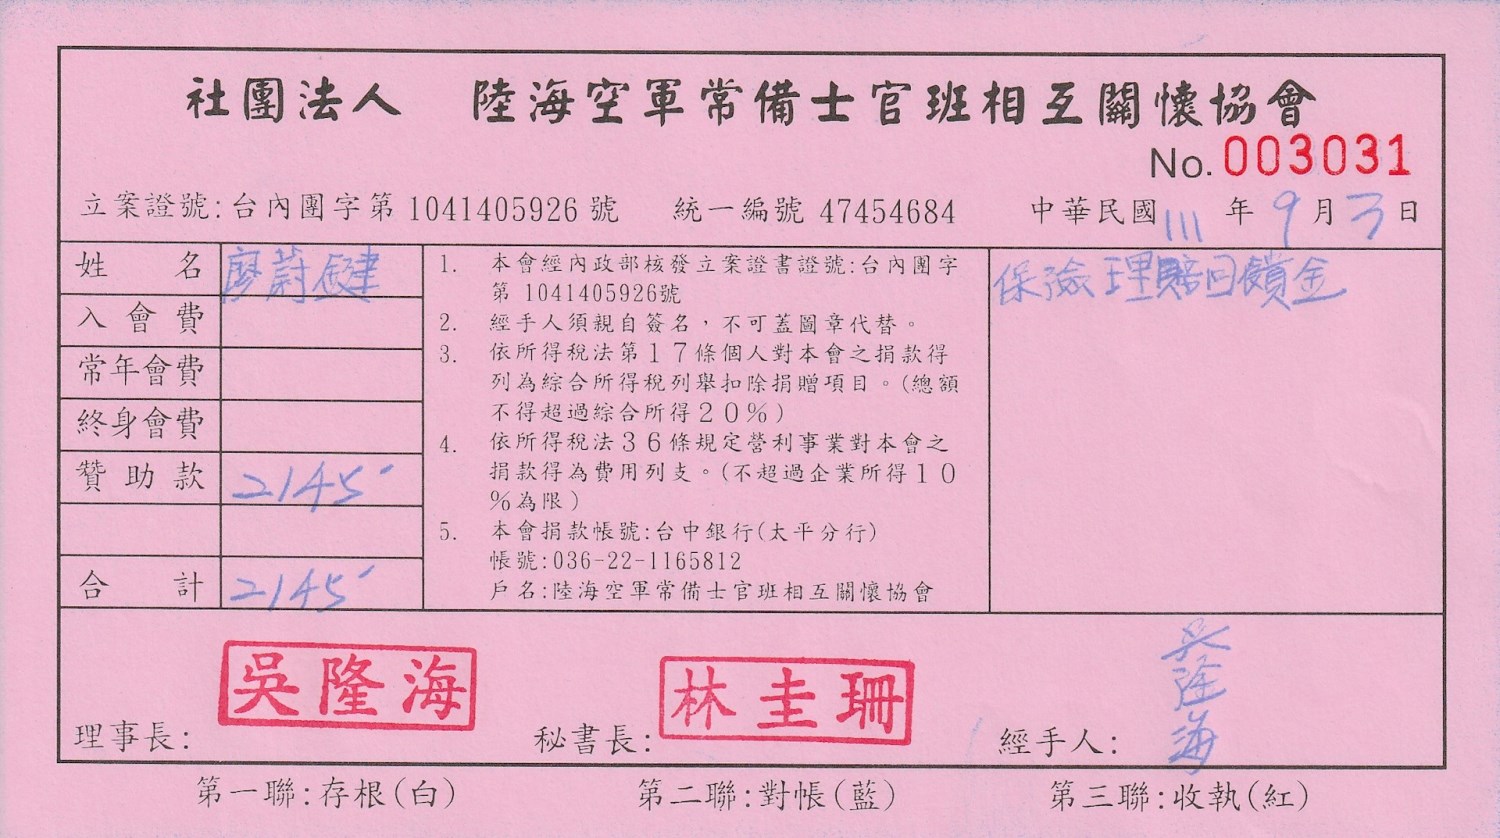 社團法人 陸海空軍常備士官班相互關懷協會
No. 003031
立案證號:台內團字第1041405926號 統一編號 47454684 中華民國111年9月3日
姓名 廖蔚鍵
入會費
常年會費
終身會費
贊助款 2145
合計 2145
1. 本會經內政部核發立案證書證號:台內團字
第 1041405926號
2. 經手人須親自簽名，不可蓋圖章代替。
3. 依所得稅法第17條個人對本會之捐款得
列為綜合所得稅列舉扣除捐贈項目。(總額
不得超過綜合所得20%)
4. 依所得稅法36條規定營利事業對本會之
捐款得為費用列支。(不超過企業所得10
%為限)
5. 本會捐款帳號:台中銀行(太平分行)
帳號:036-22-1165812
戶名:陸海空軍常備士官班相互關懷協會
保險理賠回饋金
理事長: 吳隆海 秘書長: 林圭珊 經手人: 吳隆海
第一聯:存根(白) 第二聯:對帳(藍) 第三聯:收執(紅)